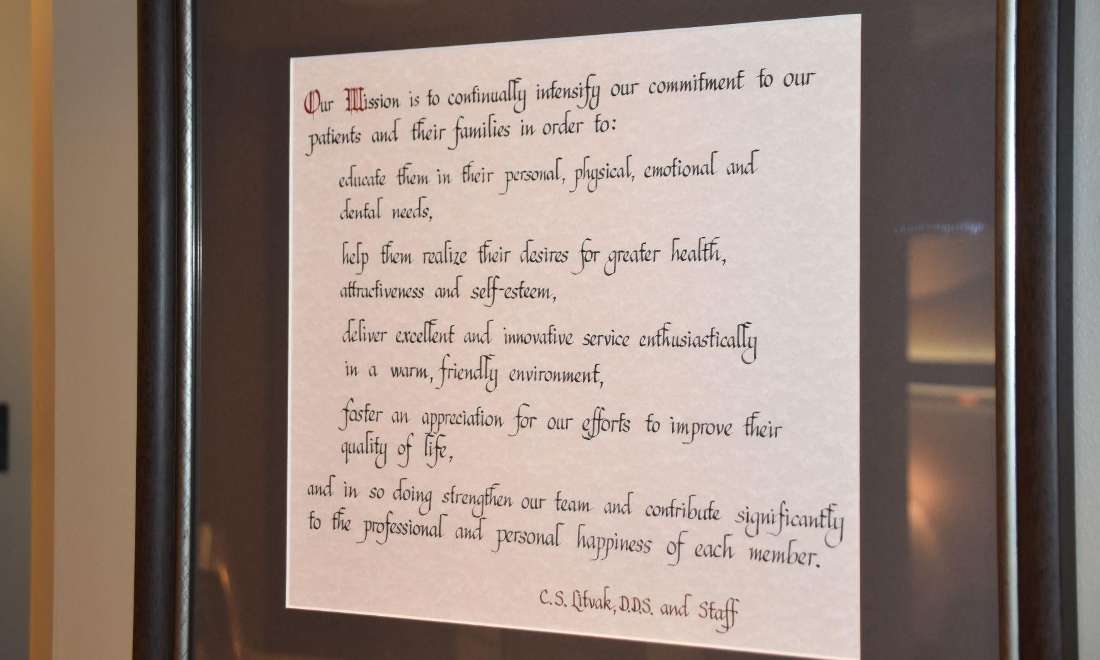 Our Mission is to continually intensify our commitment to our
patients and their families in order to:
educate them in their personal, physical, emotional and
dental needs,
help them realize their desires for greater health,
attractiveness and self-esteem,
deliver excellent and innovative service enthusiastically
in a warm, friendly environment,
foster an appreciation for our efforts to improve their
quality of life,
and in so doing strengthen our team and contribute significantly
to the professional and personal happiness of each member.
C.S. Litvak, D.D.S. and Staff